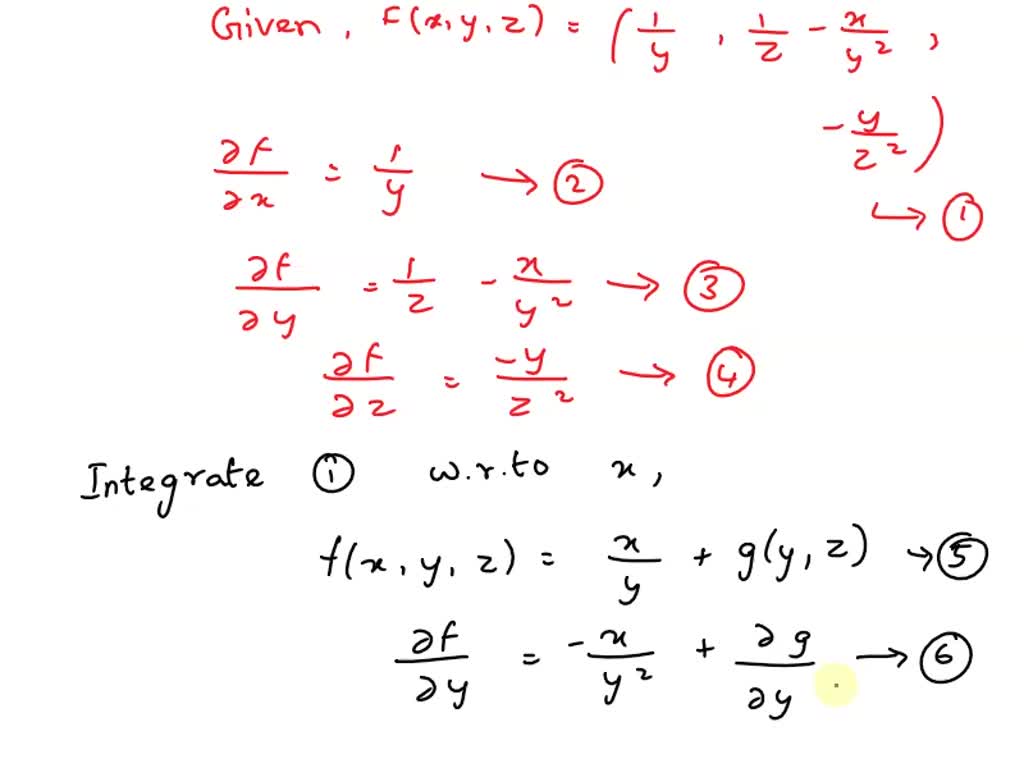 Given, F(x, y, z) = (1/y, 1/z - x/y²,
-y/z²)
→ ①
∂f/∂x = 1/y → ②
∂f/∂y = 1/z - x/y² → ③
∂f/∂z = -y/z² → ④
Integrate ① w.r.to x,
f(x, y, z) = x/y + g(y, z) → ⑤
∂f/∂y = -x/y² + ∂g/∂y → ⑥